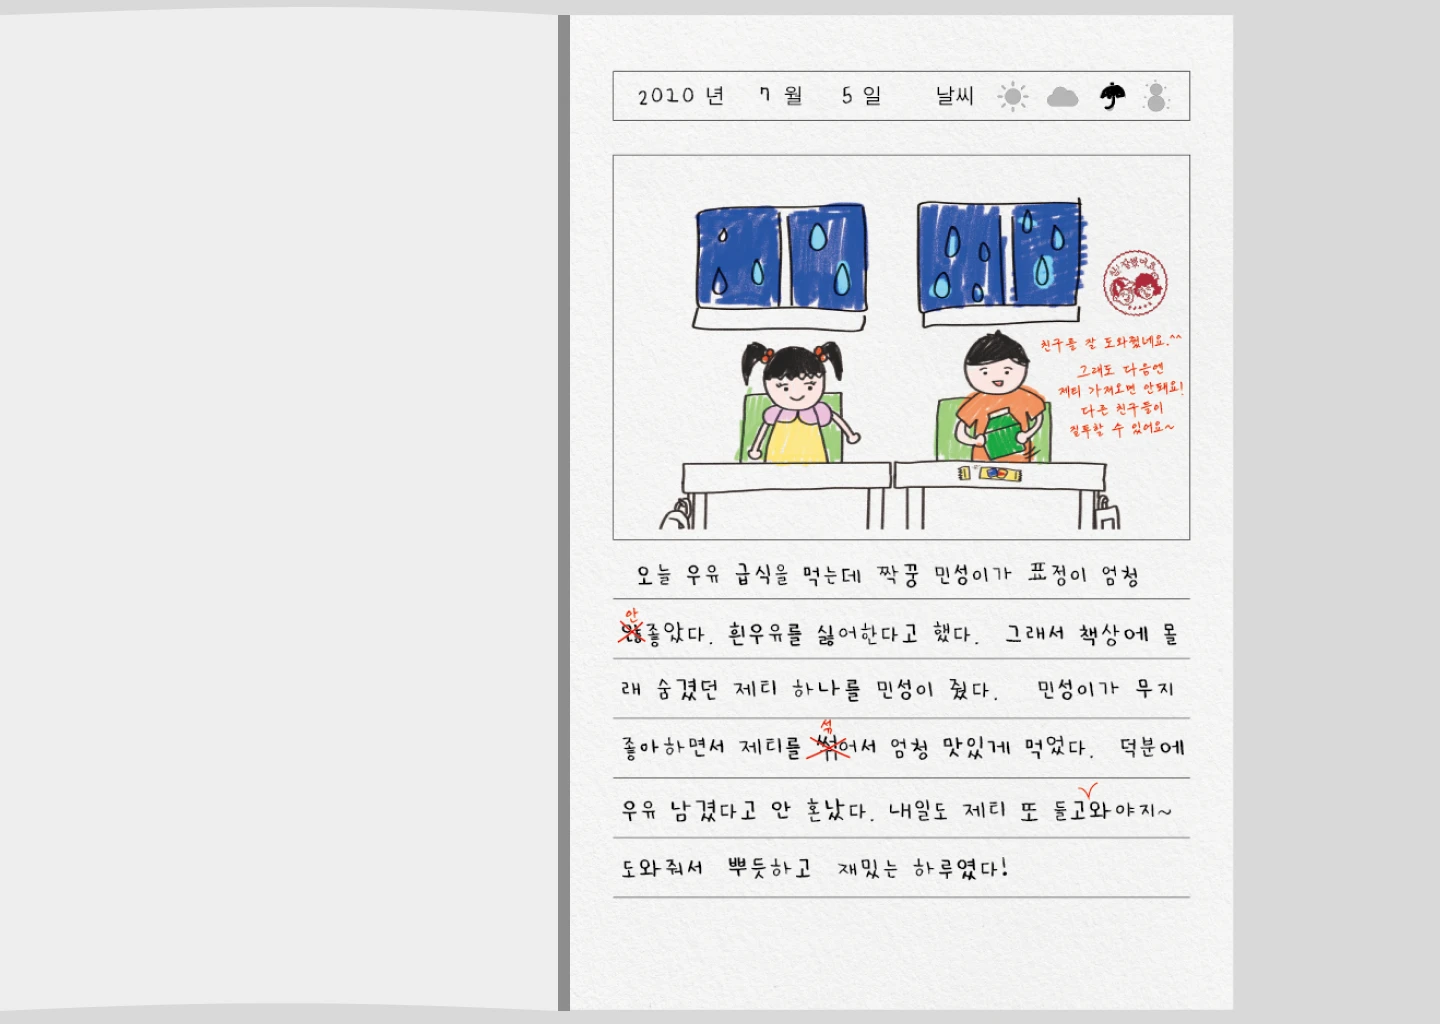 2010 년 7 월 5 일 날씨
참! 잘했어요
친구를 잘 도와줬네요.^^
그래도 다음엔
제티 가져오면 안돼요!
다른 친구들이
질투할 수 있어요~
오늘 우유 급식을 먹는데 짝꿍 민성이가 표정이 엄청
안
않좋았다. 흰우유를 싫어한다고 했다. 그래서 책상에 몰
래 숨겼던 제티 하나를 민성이 줬다. 민성이가 무지
섞
썪어서 엄청 맛있게 먹었다. 덕분에
좋아하면서 제티를
우유 남겼다고 안 혼났다. 내일도 제티 또 들고와야지~
도와줘서 뿌듯하고 재밌는 하루였다!